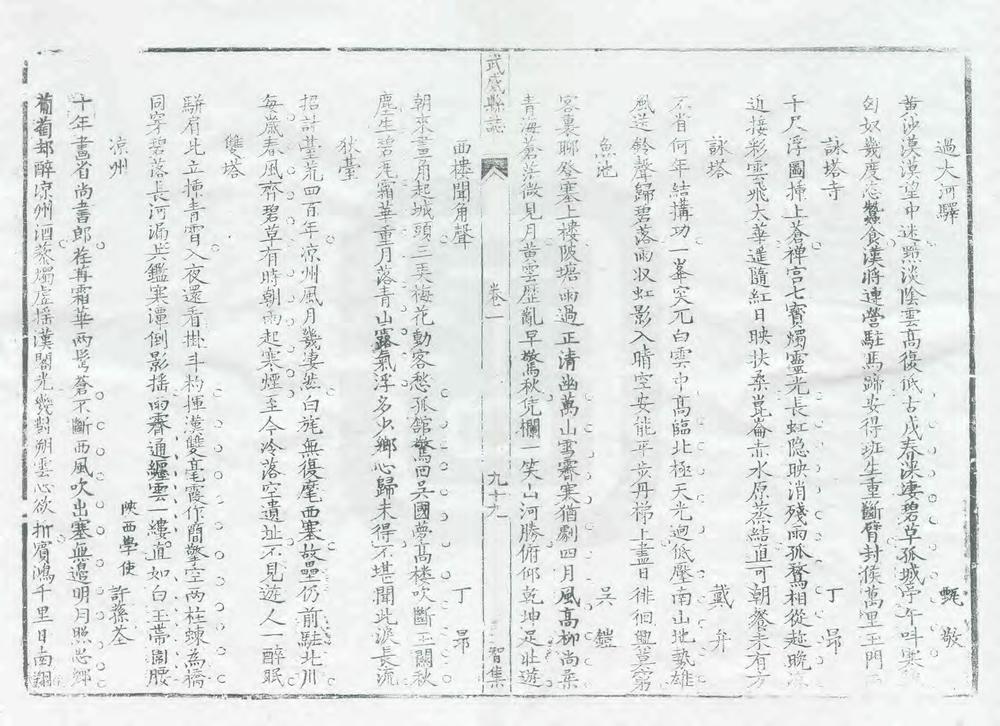 過大河驛　甄敬
黃沙漠漠望中迷黯淡陰雲高復低古戍春深淒碧草孤城亭午叫寒
匈奴幾度恣蠶食漢將連營駐馬蹄安得班生重斷臂封侯萬里玉門
詠塔寺　丁昂
千尺浮圖插上蒼禪宮七寶燭靈光長虹隐映消殘雨孤鶩相從趂晚
近接彩雲飛太華遥隨紅日映扶桑崑崙赤水原蒸結直可朝餐未有方
詠塔　戴弁
不省何年結搆功一峯突兀白雲中高臨北極天光逈低壓南山地勢雄
風送鈴聲歸碧落雨収虹影入晴空安能平步丹梯上盡日徘徊興莫窮
魚池　吴鎧
客裏聊登塞上樓陂塘雨過正清幽萬山雪霽寒猶劇四月風高柳尚柔
青海蒼茫微見月黄雲歷亂早驚秋凭欄一笑山河勝俯仰乾坤足壯遊
武威縣誌
卷一
九十六
智集
西樓聞角聲　丁昴
朝來畫角起城頭三弄梅花動客愁孤館驚回吴國夢高樓吹斷玉關秋
塵生碧毛霜華重月落青山露氣浮多少鄉心歸未得不堪聞此淚長流
狄臺
招討臺荒四百年凉州風月幾凄然白旄無復麾西塞故壘仍前駐北川
每歲春風齊碧草有時朝雨起寒煙至今冷落空遺址不見遊人一醉眠
雙塔
駢肩此立揷青霄入夜還看掛斗杓揮漢雙毫霞作簡擎空两柱蝀為橋
同穿碧落長河漏共鑑寒潭倒影摇雨霽通纏雲一縷直如白玉帶圍腰
凉州　陝西學使　許蓀荃
十年畫省尚書郎荏苒霜華两鬂蒼不斷西風吹出塞無邊明月照思鄉
葡萄却醉凉州酒蒸燭虚摇漢閣光幾對朔雲心欲折賓鴻千里日南翔